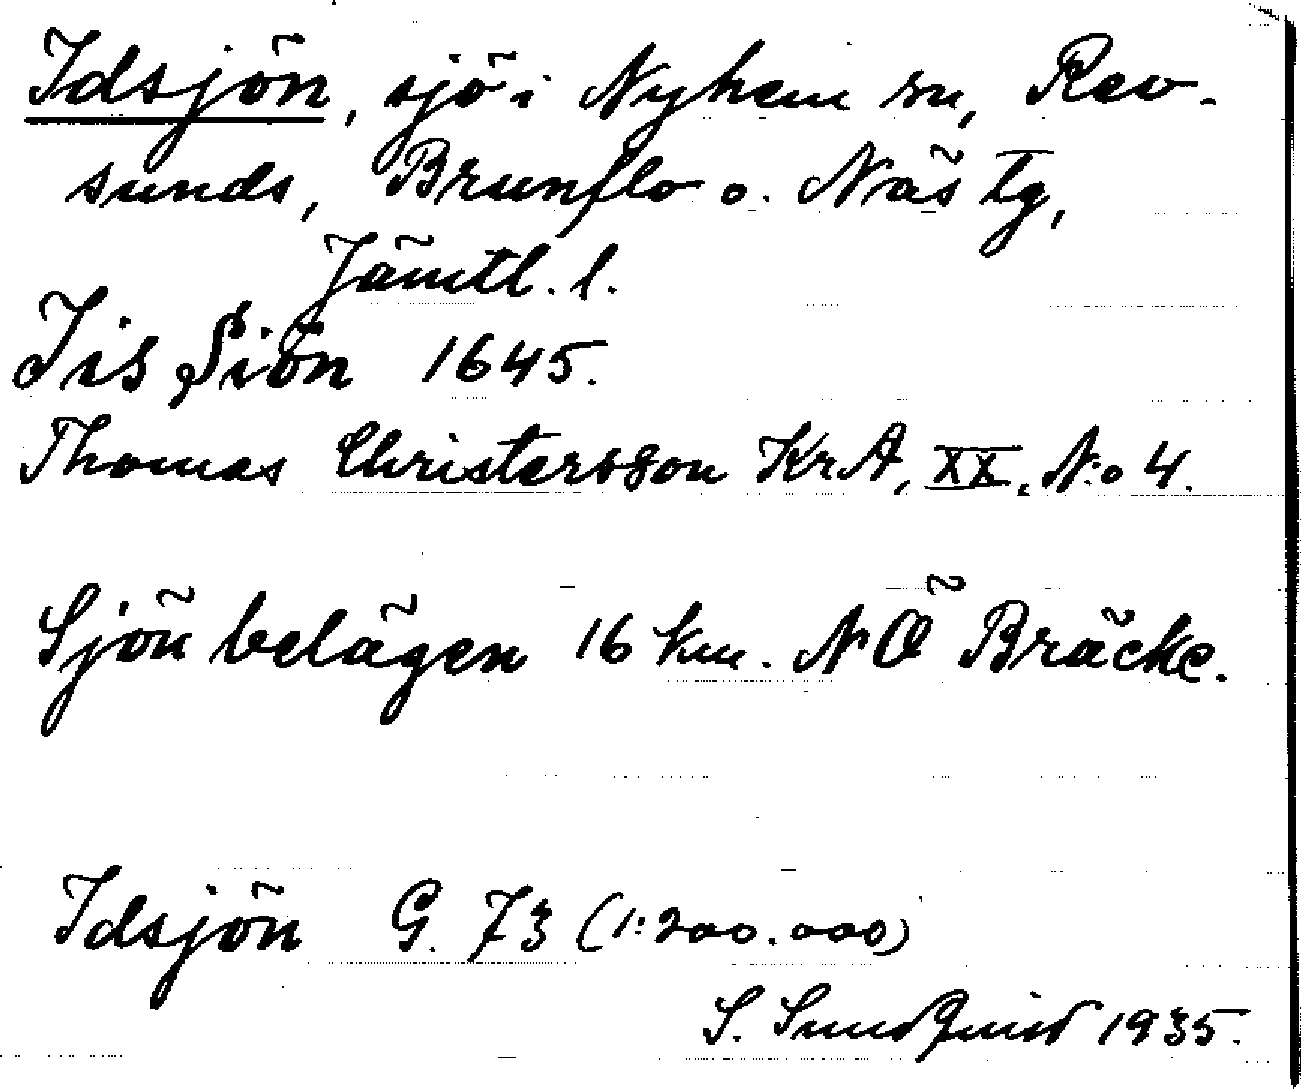 Idsjön, sjö i Nyhem sn, Rev-
sunds, Brunflo o. Näs tg,
Jämtl. l.
Jis Siön 1645.
Thomas Christersson KrA, XX, N:o 4.
Sjön belägen 16 km. NÖ Bräcke.
Idsjön G. 73 (1:200.000)
S. Sundquist 1935.